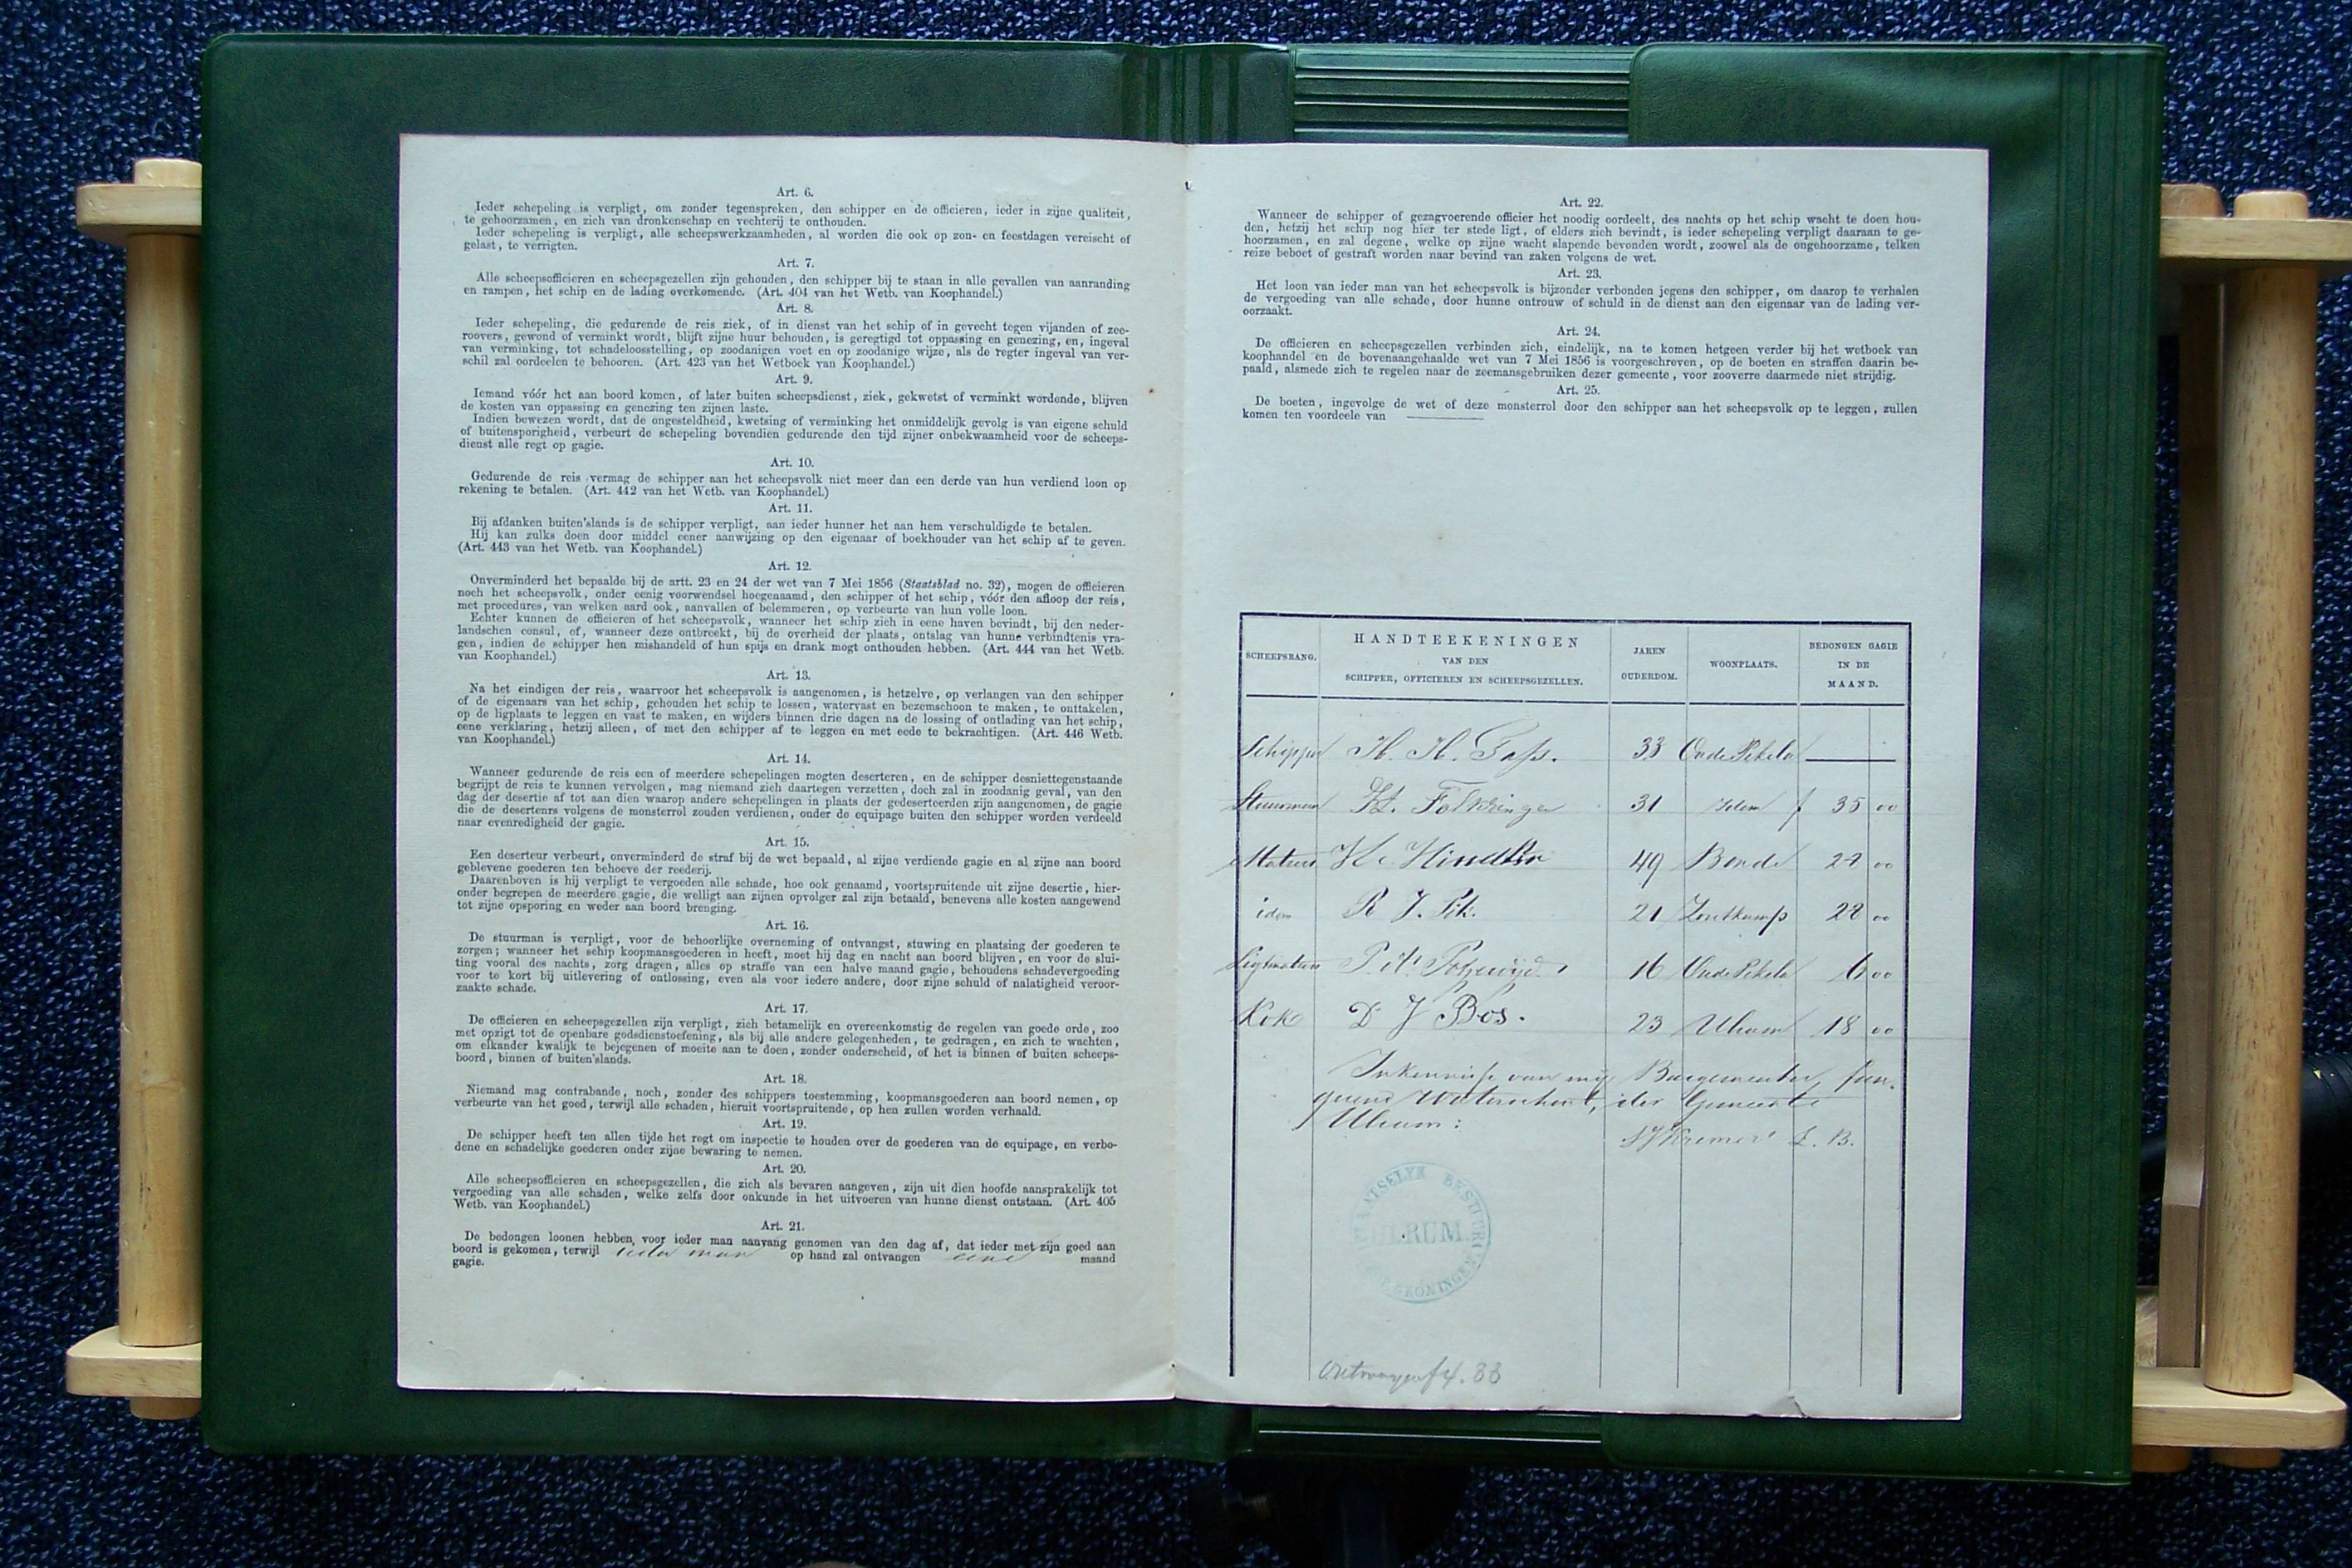 Art. 6.
Ieder schepeling is verpligt, om zonder tegenspreken, den schipper en de officieren, ieder in zijne qualiteit,
te gehoorzamen, en zich van dronkenschap en vechterij te onthouden.
Ieder schepeling is verpligt, alle scheepswerkzaamheden, al worden die ook op zon- en feestdagen vereischt of
gelast, te verrigten.
Art. 7.
Alle scheepsofficieren en scheepsgezellen zijn gehouden, den schipper bij te staan in alle gevallen van aanranding
en rampen, het schip en de lading overkomende. (Art. 404 van het Wetb. van Koophandel.)
Art. 8.
Ieder schepeling, die gedurende de reis ziek, of in dienst van het schip of in gevecht tegen vijanden of zee-
roovers, gewond of verminkt wordt, blijft zijne huur behouden, is geregtigd tot oppassing en genezing, en, ingeval
van verminking, tot schadeloosstelling, op zoodanigen voet en op zoodanige wijze, als de regter ingeval van ver-
schil zal oordeelen te behooren. (Art. 423 van het Wetboek van Koophandel.)
Art. 9.
Iemand vóór het aan boord komen, of later buiten scheepsdienst, ziek, gekwetst of verminkt wordende, blijven
de kosten van oppassing en genezing ten zijnen laste.
Indien bewezen wordt, dat de ongesteldheid, kwetsing of verminking het onmiddelijk gevolg is van eigene schuld
of buitensporigheid, verbeurt de schepeling bovendien gedurende den tijd zijner onbekwaamheid voor de scheeps-
dienst alle regt op gagie.
Art. 10.
Gedurende de reis vermag de schipper aan het scheepsvolk niet meer dan een derde van hun verdiend loon op
rekening te betalen. (Art. 442 van het Wetb. van Koophandel.)
Art. 11.
Bij afdanken buiten'slands is de schipper verpligt, aan ieder hunner het aan hem verschuldigde te betalen.
Hij kan zulks doen door middel eener aanwijzing op den eigenaar of boekhouder van het schip af te geven.
(Art. 443 van het Wetb. van Koophandel.)
Art. 12.
Onverminderd het bepaalde bij de artt. 23 en 24 der wet van 7 Mei 1856 (Staatsblad no. 32), mogen de officieren
noch het scheepsvolk, onder eenig voorwendsel hoegenaamd, den schipper of het schip, vóór den afloop der reis,
met procedures, van welken aard ook, aanvallen of belemmeren, op verbeurte van hun volle loon.
Echter kunnen de officieren of het scheepsvolk, wanneer het schip zich in eene haven bevindt, bij den neder-
landschen consul, of, wanneer deze ontbreekt, bij de overheid der plaats, ontslag van hunne verbindtenis vra-
gen, indien de schipper hen mishandeld of hun spijs en drank mogt onthouden hebben. (Art. 444 van het Wetb.
van Koophandel.)
Art. 13.
Na het eindigen der reis, waarvoor het scheepsvolk is aangenomen, is hetzelve, op verlangen van den schipper
of de eigenaars van het schip, gehouden het schip te lossen, watervast en bezemschoon te maken, te onttakelen,
op de ligplaats te leggen en vast te maken, en wijders binnen drie dagen na de lossing of ontlading van het schip,
eene verklaring, hetzij alleen, of met den schipper af te leggen en met eede te bekrachtigen. (Art. 446 Wetb.
van Koophandel.)
Art. 14.
Wanneer gedurende de reis een of meerdere schepelingen mogten deserteren, en de schipper desniettegenstaande
begrijpt de reis te kunnen vervolgen, mag niemand zich daartegen verzetten, doch zal in zoodanig geval, van den
dag der desertie af tot aan dien waarop andere schepelingen in plaats der gedeserteerden zijn aangenomen, de gagie
die de deserteurs volgens de monsterrol zouden verdienen, onder de equipage buiten den schipper worden verdeeld
naar evenredigheid der gagie.
Art. 15.
Een deserteur verbeurt, onverminderd de straf bij de wet bepaald, al zijne verdiende gagie en al zijne aan boord
geblevene goederen ten behoeve der reederij.
Daarenboven is hij verpligt te vergoeden alle schade, hoo ook genaamd, voortspruitende uit zijne desertie, hier-
onder begrepen de meerdere gagie, die welligt aan zijnen opvolger zal zijn betaald, benevens alle kosten aangewend
tot zijne opsporing en weder aan boord brenging.
Art. 16.
De stuurman is verpligt, voor de behoorlijke overneming of ontvangst, stuwing en plaatsing der goederen te
zorgen; wanneer het schip koopmansgoederen in heeft, moet hij dag en nacht aan boord blijven, en voor de slui-
ting vooral des nachts, zorg dragen, alles op straffe van een halve maand gagie, behoudens schadevergoeding
voor te kort bij uitlevering of ontlossing, even als voor iedere andere, door zijne schuld of nalatigheid veroor-
zaakte schade.
Art. 17.
De officieren en scheepsgezellen zijn verpligt, zich betamelijk en overeenkomstig de regelen van goede orde, zoo
met opzigt tot de openbare godsdienstoefening, als bij alle andere gelegenheden, te gedragen, en zich te wachten,
om elkander kwalijk te bejegenen of moeite aan te doen, zonder onderscheid, of het is binnen of buiten scheeps-
boord, binnen of buiten'slands.
Art. 18.
Niemand mag contrabande, noch, zonder des schippers toestemming, koopmansgoederen aan boord nemen, op
verbeurte van het goed, terwijl alle schaden, hieruit voortspruitende, op hen zullen worden verhaald.
Art. 19.
De schipper heeft ten allen tijde het regt om inspectie te houden over de goederen van de equipage, en verbo-
dene en schadelijke goederen onder zijne bewaring te nemen.
Art. 20.
Alle scheepsofficieren en scheepsgezellen, die zich als bevaren aangeven, zijn uit dien hoofde aansprakelijk tot
vergoeding van alle schaden, welke zelfs door onkunde in het uitvoeren van hunne dienst ontstaan. (Art. 405
Wetb. van Koophandel.)
Art. 21.
De bedongen loonen hebben voor ieder man aanvang genomen van den dag af, dat ieder met zijn goed aan
boord is gekomen, terwijl ieder man op hand zal ontvangen eene maand
gagie.
Art. 22.
Wanneer de schipper of gezagvoerende officier het noodig oordeelt, des nachts op het schip wacht te doen hou-
den, hetzij het schip nog hier ter stede ligt, of elders zich bevindt, is ieder schepeling verpligt daaraan te ge-
hoorzamen, en zal degene, welke op zijne wacht slapende bevonden wordt, zoowel als de ongehoorzame, telken
reize beboet of gestraft worden naar bevind van zaken volgens de wet.
Art. 23.
Het loon van ieder man van het scheepsvolk is bijzonder verbonden jegens den schipper, om daarop te verhalen
de vergoeding van alle schade, door hunne ontrouw of schuld in de dienst aan den eigenaar van de lading ver-
oorzaakt.
Art. 24.
De officieren en scheepsgezellen verbinden zich, eindelijk, na te komen hetgeen verder bij het wetboek van
koophandel en de bovenaangehaalde wet van 7 Mei 1856 is voorgeschreven, op de boeten en straffen daarin be-
paald, alsmede zich te regelen naar de zeemansgebruiken dezer gemeente, voor zooverre daarmede niet strijdig.
Art. 25.
De boeten, ingevolge de wet of deze monsterrol door den schipper aan het scheepsvolk op te leggen, zullen
komen ten voordeele van
SCHEEPSRANG. HANDTEEKENINGEN VAN DEN SCHIPPER, OFFICIEREN EN SCHEEPSGEZELLEN. JAREN OUDERDOM. WOONPLAATS. BEDONGEN GAGIE IN DE MAAND.
Schipper H. H. 33 Oude Pekela
Stuurman Folkringa 31 idem f 35 00
Matroos 49 Bonde 00
idem R J. Pik. 21 Zoutkamp 28 00
Ligtmatroos 16 Oude Pekela 6 00
Kok D J Bos. 23 Ulrum 18 00
In kennisse van mij Burgemeester, fun-
gerend Waterschout, der Gemeente
Ulrum:
Kremer L. B.
PLAATSELYK BESTUUR ULRUM. GRONINGEN
Ontvangen f 4.33